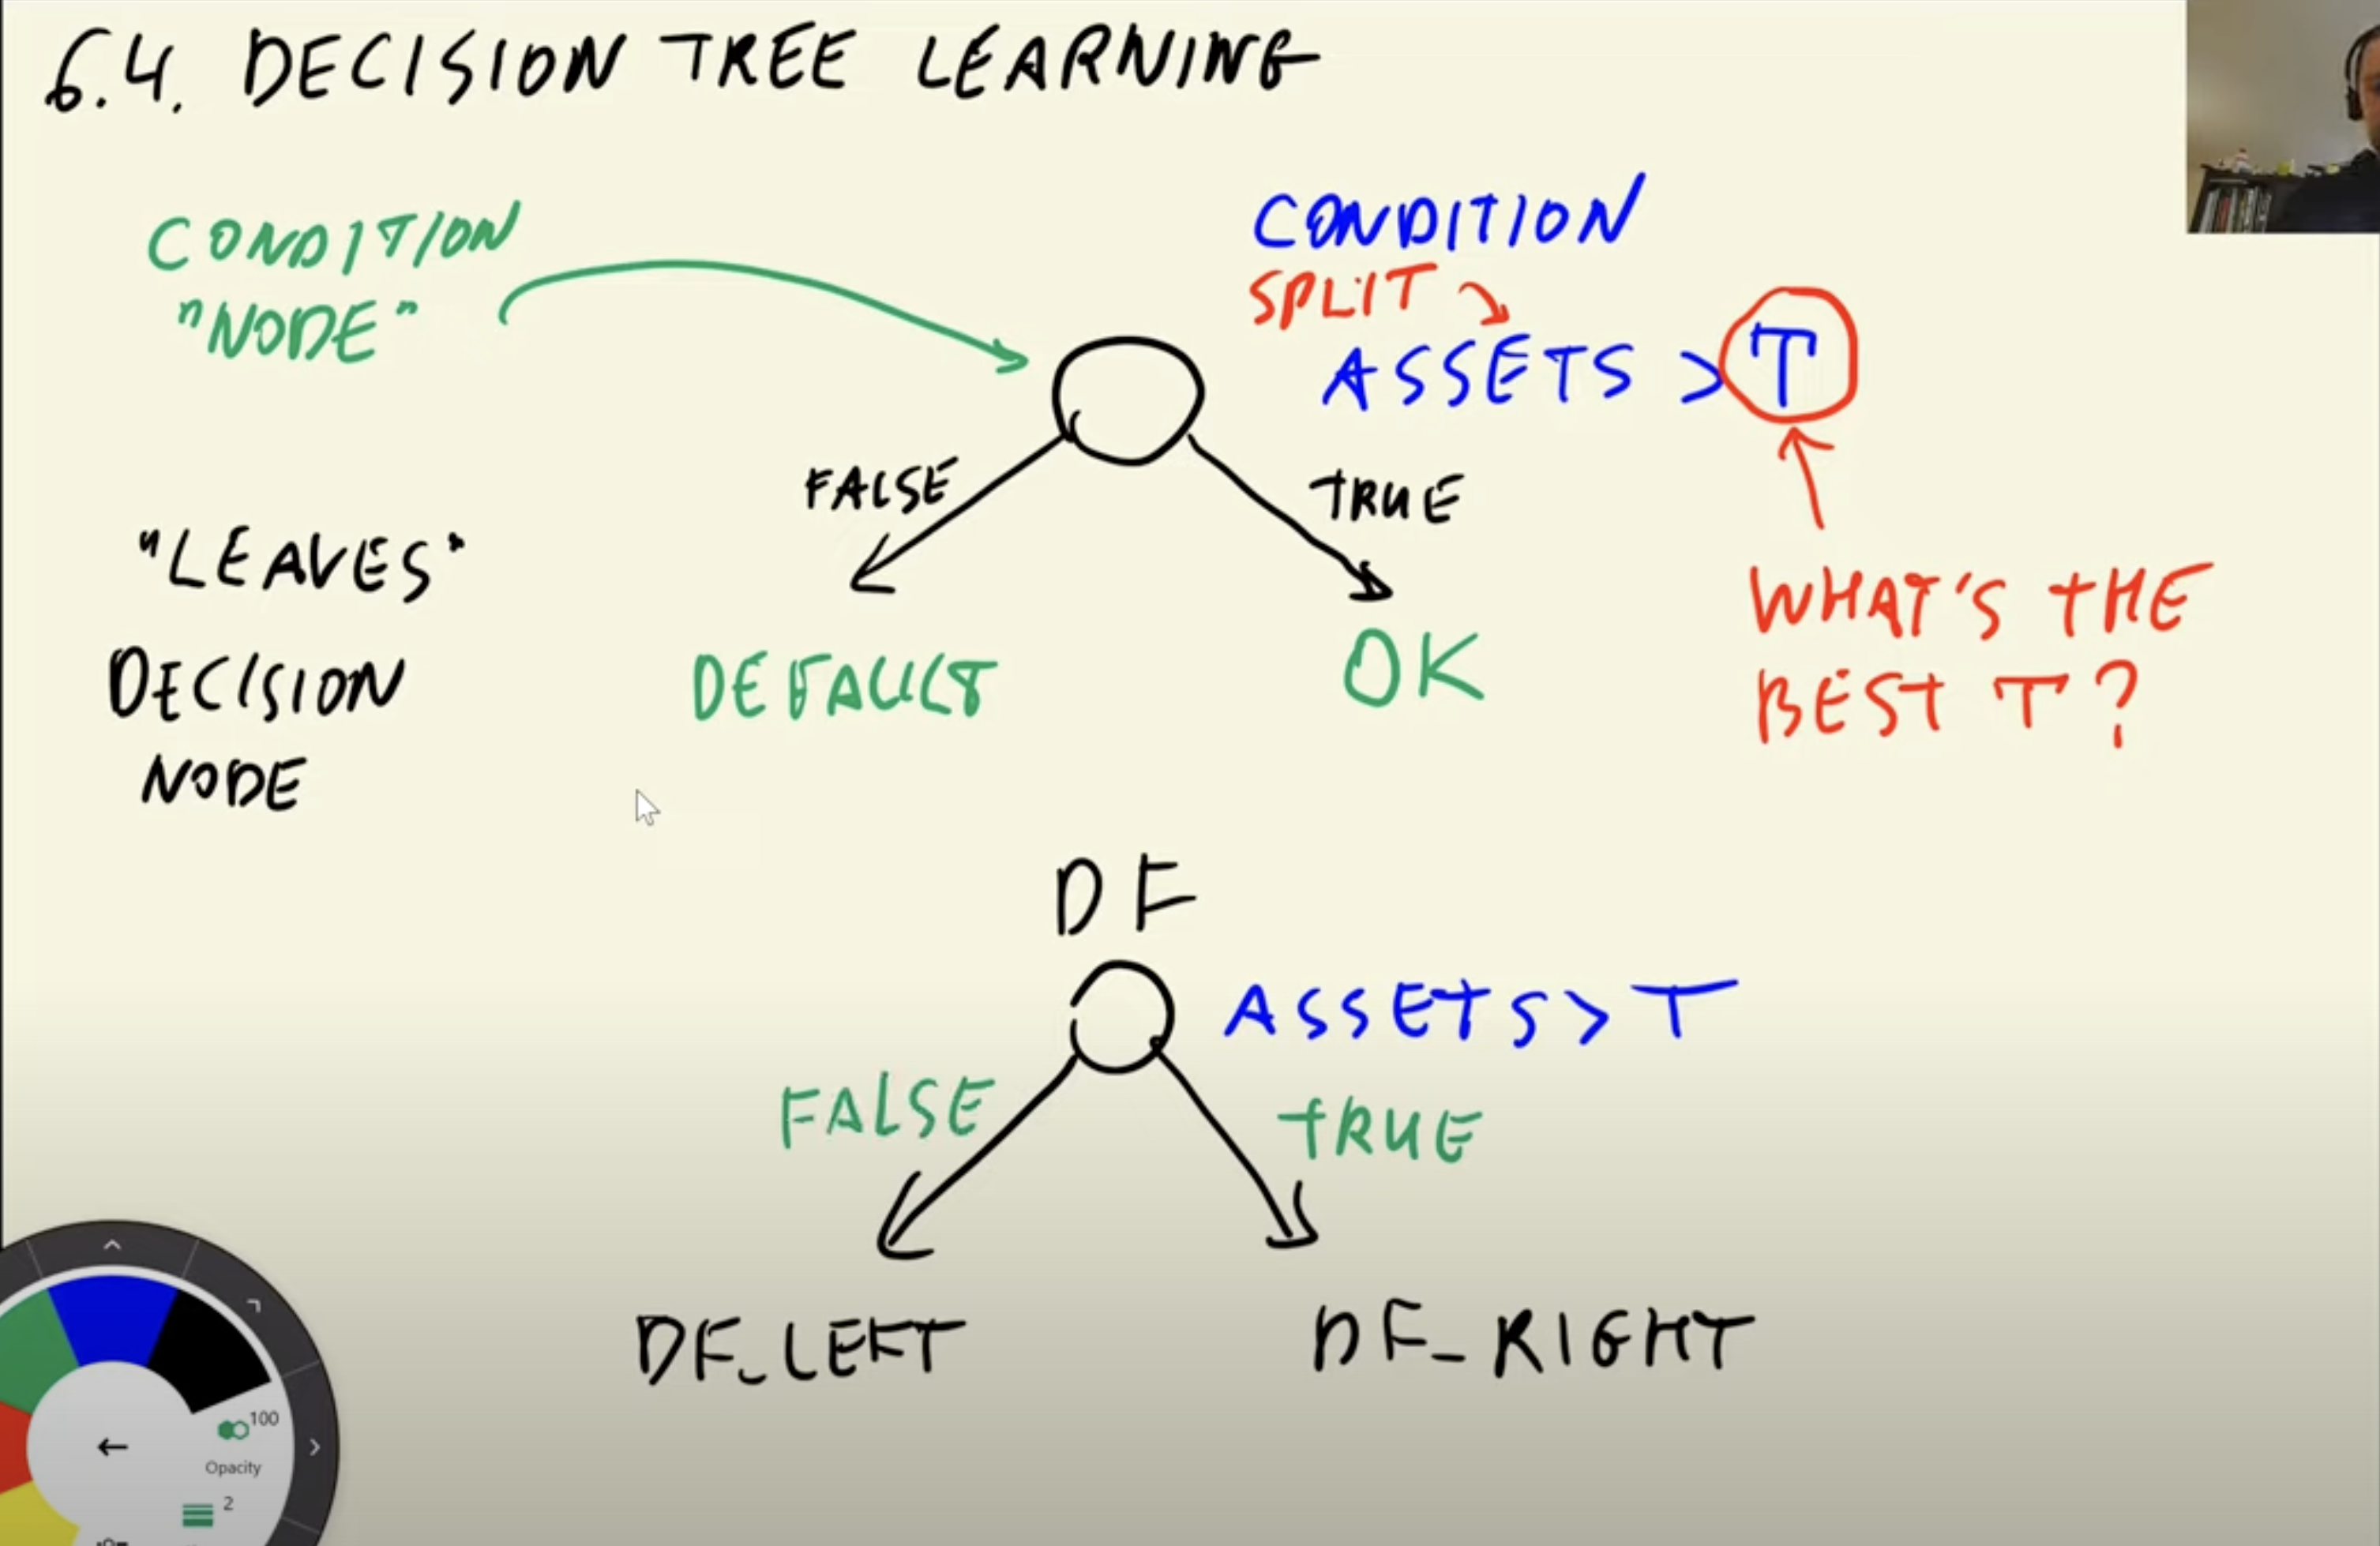 6.4. DECISION TREE LEARNING
CONDITION
"NODE"
CONDITION
SPLIT
ASSETS > T
FALSE
TRUE
"LEAVES"
DECISION
NODE
DEFAULT
OK
WHAT'S THE
BEST T?
DF
ASSETS > T
FALSE
TRUE
DF_LEFT
DF_RIGHT
100
Opacity
2